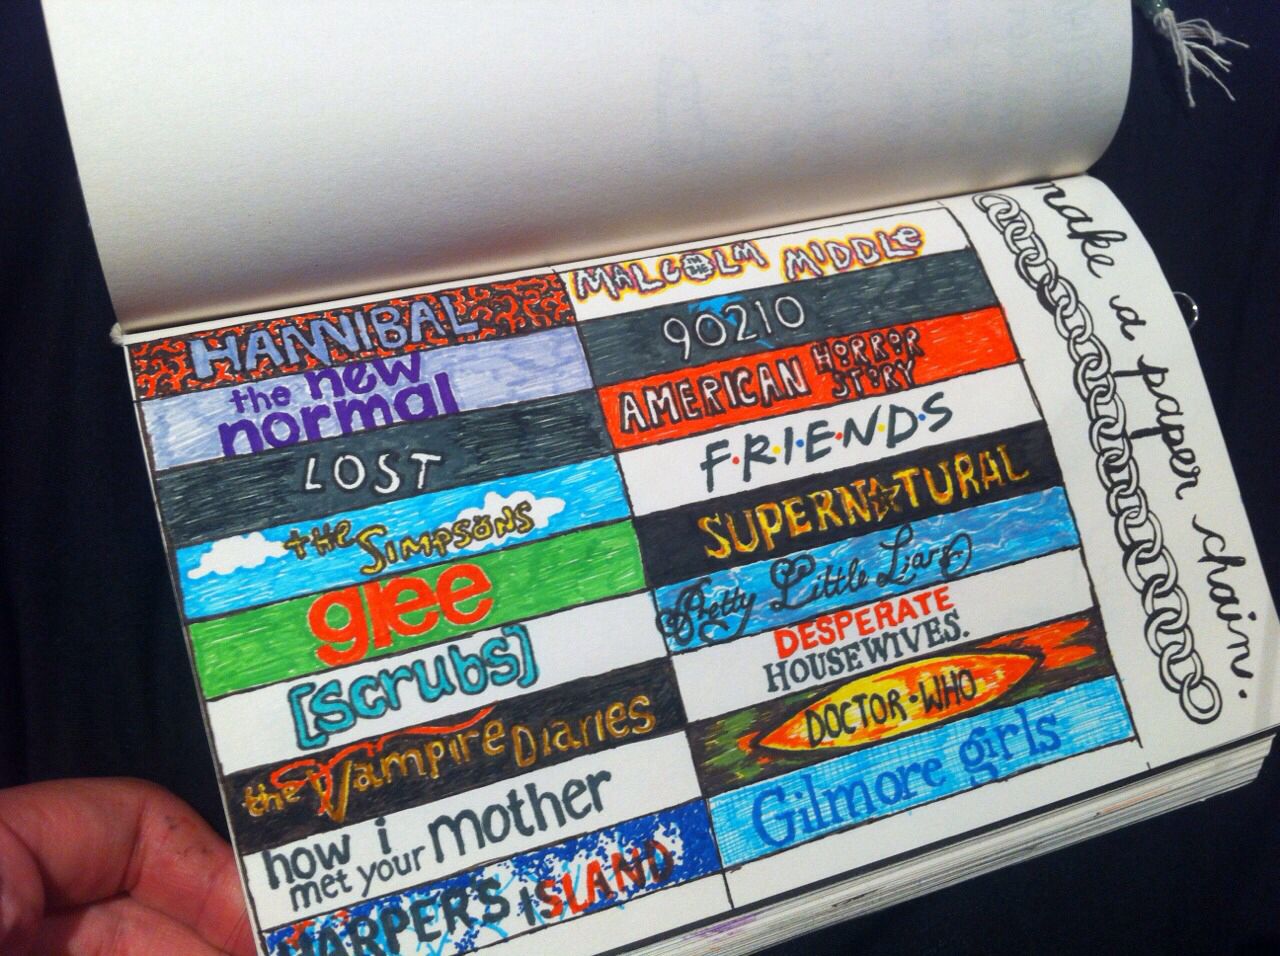 HANNIBAL
the new
normal
LOST
the Simpsons
glee
[scrubs]
the Vampire Diaries
how i
met your mother
HARPER'S ISLAND
MALCOLM IN THE MIDDLE
90210
AMERICAN HORROR
STORY
F·R·I·E·N·D·S
SUPERNATURAL
Pretty Little Liars
DESPERATE
HOUSEWIVES.
DOCTOR·WHO
Gilmore girls
make a paper chain.